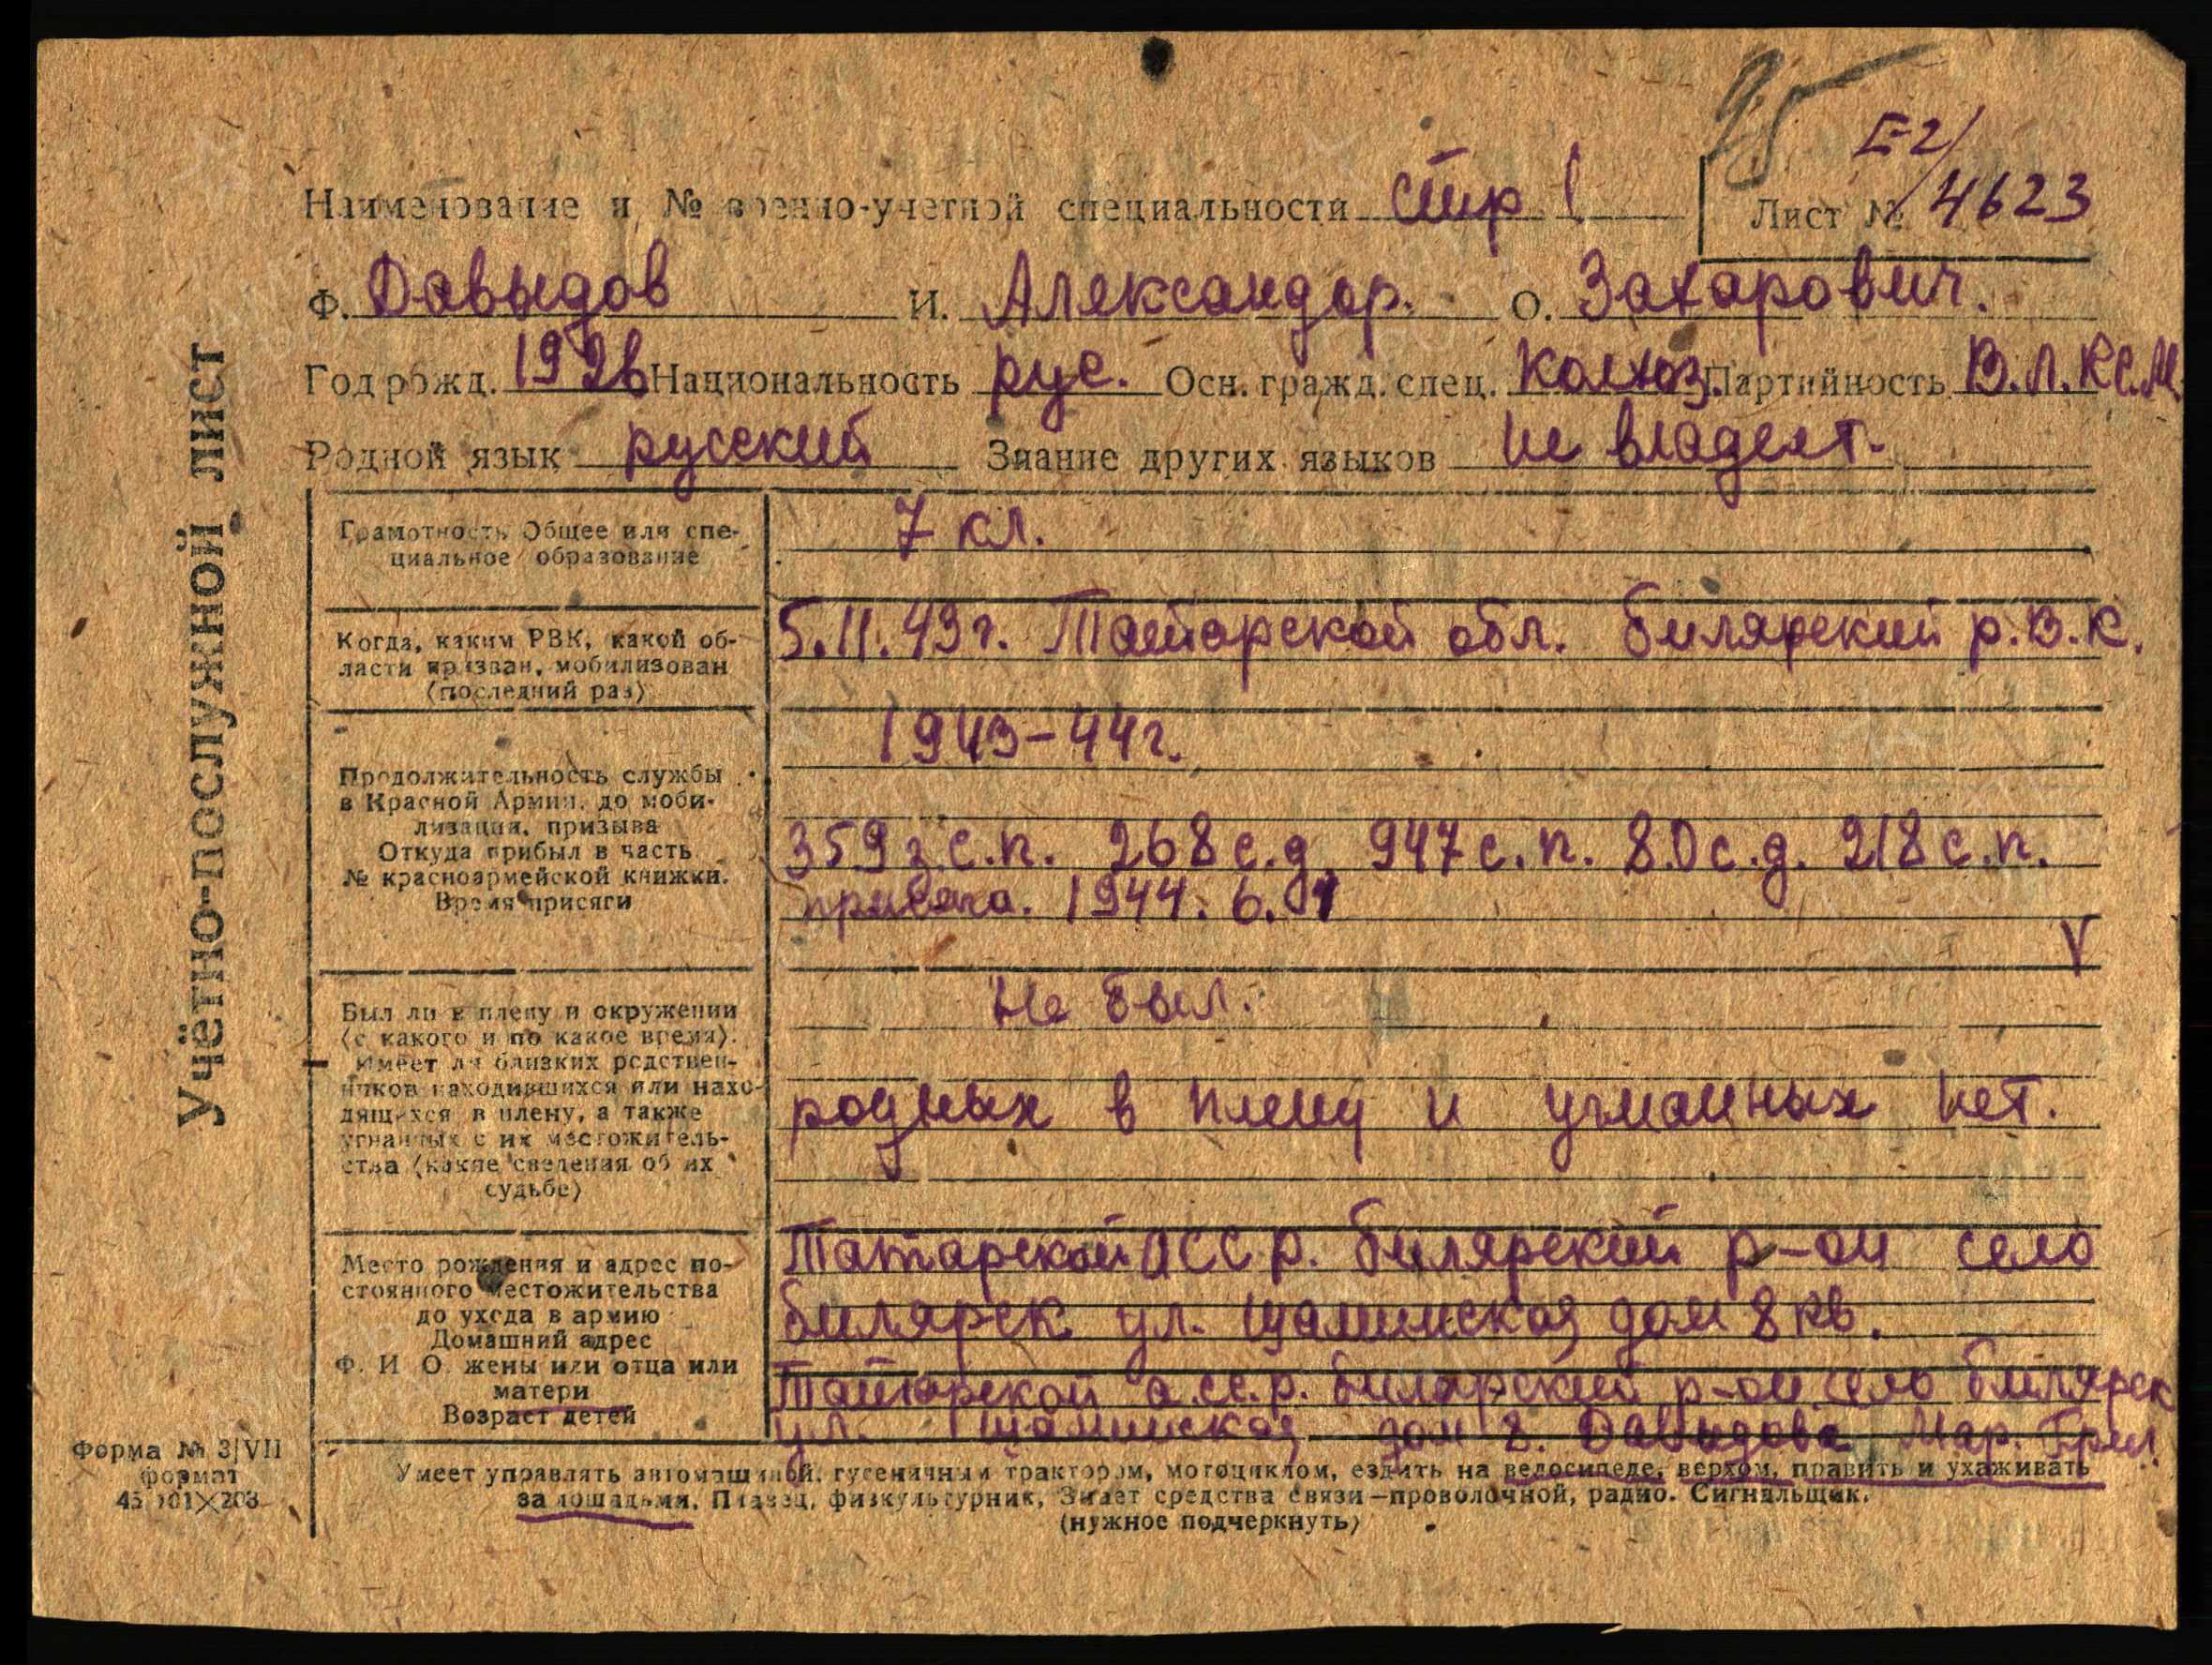 95
Е-2/
Наименование и № военно-учетной специальности стр 1 Лист № 4623
Ф. Давыдов И. Александор. О. Захарович.
Год рожд. 1926 Национальность рус. Осн. гражд. спец. колхоз. Партийность В.Л.КС.М.
Родной язык русский Знание других языков не владеет.
Учётно-послужной лист
Грамотность Общее или спе-
циальное образование
7 кл.
Когда, каким РВК, какой об-
ласти призван, мобилизован
(последний раз)
5.11.43г. Татарской обл. Билярский р.в.к.
Продолжительность службы
в Красной Армии, до моби-
лизации, призыва
Откуда прибыл в часть
№ красноармейской книжки.
Время присяги
1943-44г.
359 з.с.п. 268 с.д. 947 с.п. 80 с.д. 218 с.п.
присяга. 1944. 6.
V
Был ли в плену и окружении
(с какого и по какое время).
Имеет ли близких родствен-
ников находившихся или нахо-
дящихся в плену, а также
угнанных с их местожитель-
ства (какие сведения об их
судьбе)
Не был.
родных в плену и угнанных нет.
Место рождения и адрес по-
стоянного местожительства
до ухода в армию
Домашний адрес
Ф. И О. жены или отца или
матери
Возраст детей
Татарской АССР. Билярский р-он село
Билярск ул. Щаминская дом 8 кв.
Татарской а.сс.р. Билярский р-он село Билярск
ул. Щаминская дом 8. Давыдова Мар.
Форма № 3/VII
формат
Умеет управлять автомашиной, гусеничным трактором, мотоциклом, ездить на велосипеде, верхом, править и ухаживать
за лошадьми. Пловец, физкультурник, Знает средства связи—проволочной, радио. Сигнальщик.
(нужное подчеркнуть)